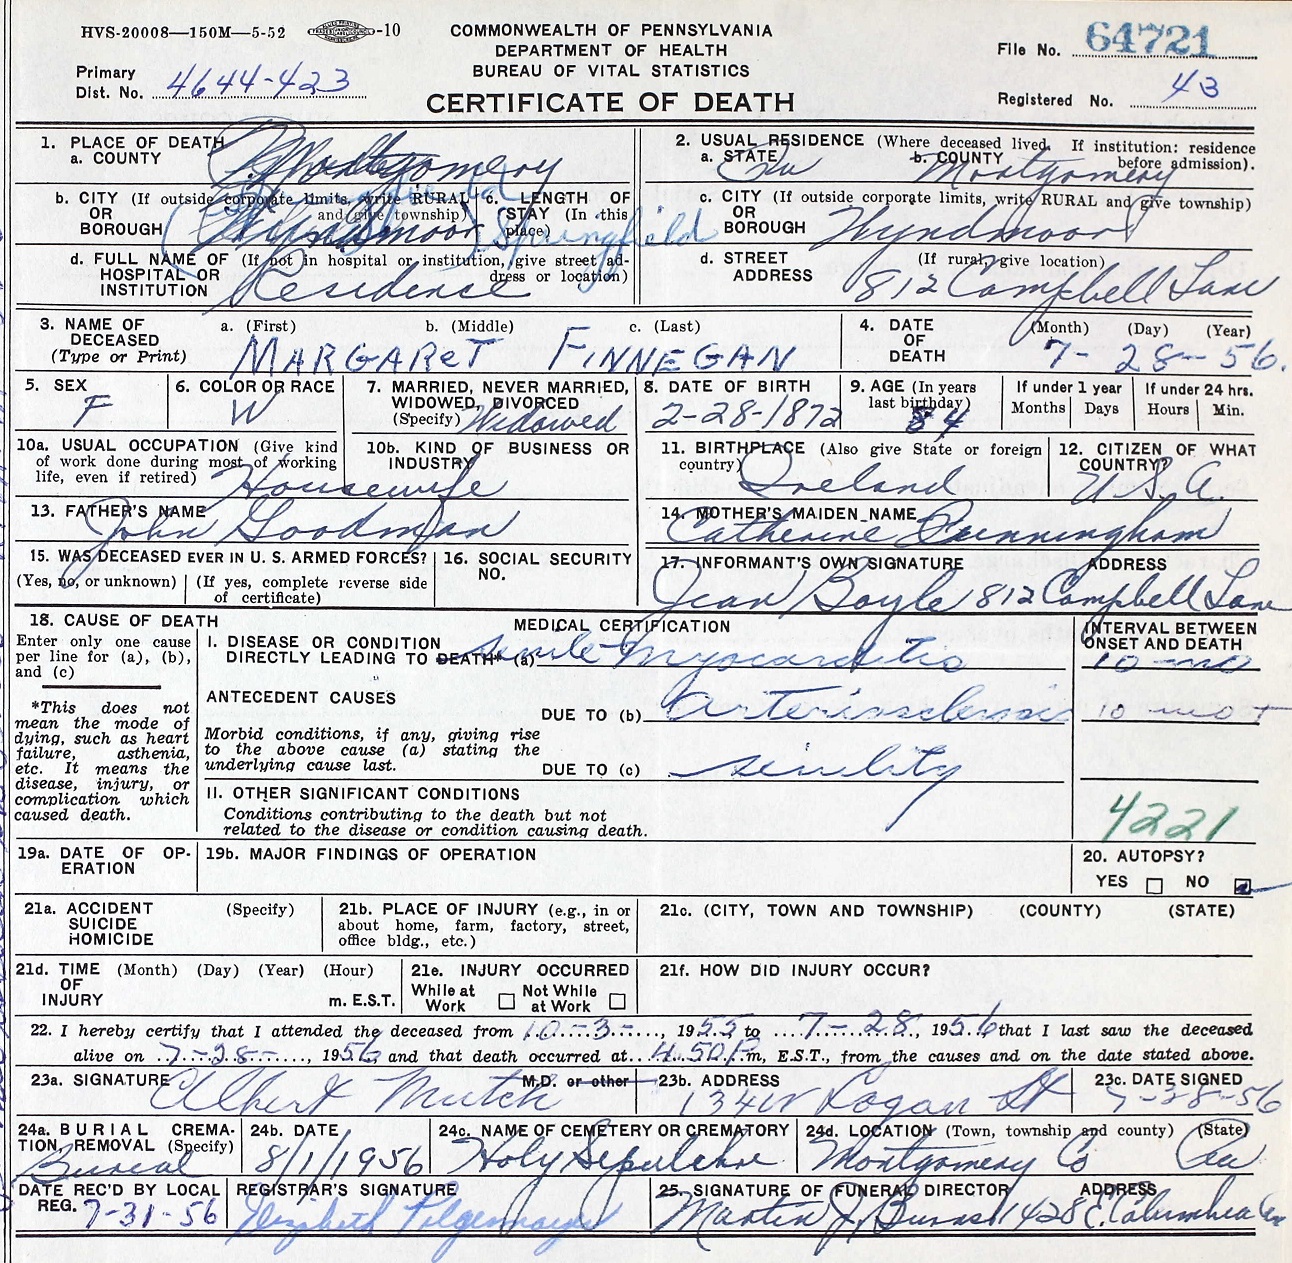 HVS-20008—150M—5-52 -10
COMMONWEALTH OF PENNSYLVANIA
DEPARTMENT OF HEALTH
BUREAU OF VITAL STATISTICS
CERTIFICATE OF DEATH
Primary
Dist. No. 4644-423
File No. 64721
Registered No. 43
1. PLACE OF DEATH
a. COUNTY Montgomery
2. USUAL RESIDENCE (Where deceased lived. If institution: residence
before admission).
a. STATE b. COUNTY Montgomery
b. CITY (If outside corporate limits, write RURAL
OR and give township)
BOROUGH Wyndmoor Springfield
c. LENGTH OF
STAY (In this
place)
c. CITY (If outside corporate limits, write RURAL and give township)
OR
BOROUGH Wyndmoor
d. FULL NAME OF (If not in hospital or institution, give street ad-
HOSPITAL OR dress or location)
INSTITUTION Residence
d. STREET (If rural, give location)
ADDRESS 812 Campbell Lane
3. NAME OF a. (First) b. (Middle) c. (Last)
DECEASED
(Type or Print) MARGARET FINNEGAN
4. DATE (Month) (Day) (Year)
OF
DEATH 7-28-56.
5. SEX
F
6. COLOR OR RACE
W
7. MARRIED, NEVER MARRIED,
WIDOWED, DIVORCED
(Specify) Widowed
8. DATE OF BIRTH
2-28-1872
9. AGE (In years
last birthday)
84
If under 1 year
Months Days
If under 24 hrs.
Hours Min.
10a. USUAL OCCUPATION (Give kind
of work done during most of working
life, even if retired) Housewife
10b. KIND OF BUSINESS OR
INDUSTRY
11. BIRTHPLACE (Also give State or foreign
country) Ireland
12. CITIZEN OF WHAT
COUNTRY?
U.S.A.
13. FATHER'S NAME
John Goodman
14. MOTHER'S MAIDEN NAME
Catherine Cunningham
15. WAS DECEASED EVER IN U. S. ARMED FORCES?
(Yes, no, or unknown) (If yes, complete reverse side
of certificate)
16. SOCIAL SECURITY
NO.
17. INFORMANT'S OWN SIGNATURE ADDRESS
Jean Boyle 812 Campbell Lane
18. CAUSE OF DEATH
Enter only one cause
per line for (a), (b),
and (c)
*This does not
mean the mode of
dying, such as heart
failure, asthenia,
etc. It means the
disease, injury, or
complication which
caused death.
MEDICAL CERTIFICATION
I. DISEASE OR CONDITION
DIRECTLY LEADING TO DEATH* (a) Senile Myocarditis
ANTECEDENT CAUSES
DUE TO (b) Arteriosclerosis
Morbid conditions, if any, giving rise
to the above cause (a) stating the
underlying cause last.
DUE TO (c) senility
INTERVAL BETWEEN
ONSET AND DEATH
10-mo
10 mo +
II. OTHER SIGNIFICANT CONDITIONS
Conditions contributing to the death but not
related to the disease or condition causing death.
4221
19a. DATE OF OP-
ERATION
19b. MAJOR FINDINGS OF OPERATION
20. AUTOPSY?
YES NO
21a. ACCIDENT (Specify)
SUICIDE
HOMICIDE
21b. PLACE OF INJURY (e.g., in or
about home, farm, factory, street,
office bldg., etc.)
21c. (CITY, TOWN AND TOWNSHIP) (COUNTY) (STATE)
21d. TIME (Month) (Day) (Year) (Hour)
OF
INJURY m. E.S.T.
21e. INJURY OCCURRED
While at Not While
Work at Work
21f. HOW DID INJURY OCCUR?
22. I hereby certify that I attended the deceased from 10-3-, 1955 to 7-28, 1956 that I last saw the deceased
alive on 7-28-, 1956 and that death occurred at 4.50 P.m, E.S.T., from the causes and on the date stated above.
23a. SIGNATURE M.D. or other
Albert Mutch
23b. ADDRESS
134 W Logan St
23c. DATE SIGNED
7-28-56
24a. BURIAL CREMA-
TION, REMOVAL (Specify)
Burial
24b. DATE
8/1/1956
24c. NAME OF CEMETERY OR CREMATORY
Holy Sepulchre
24d. LOCATION (Town, township and county) (State)
Montgomery Co Pa
DATE REC'D BY LOCAL
REG. 7-31-56
REGISTRAR'S SIGNATURE
Elizabeth
25. SIGNATURE OF FUNERAL DIRECTOR ADDRESS
Martin J. Burns 1428 E. Columbia Av